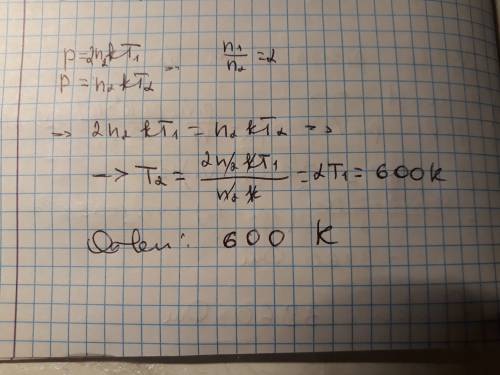 p = 2n₂kT₁ ... n₁/n₂ = 2
p = n₂kT₂
→ 2n₂ kT₁ = n₂ kT₂ →
→ T₂ = 2n₂kT₁/n₂k = 2T₁ = 600k
Ответ: 600 K